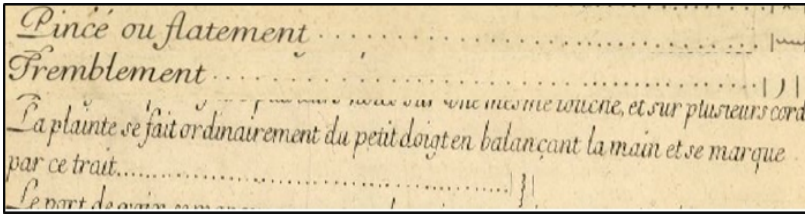 Pincé ou flatement
Tremblement
sur une mesme touche, et sur plusieurs cord
La plainte se fait ordinairement du petit doigt en balançant la main et se marque
par ce trait
Le port de